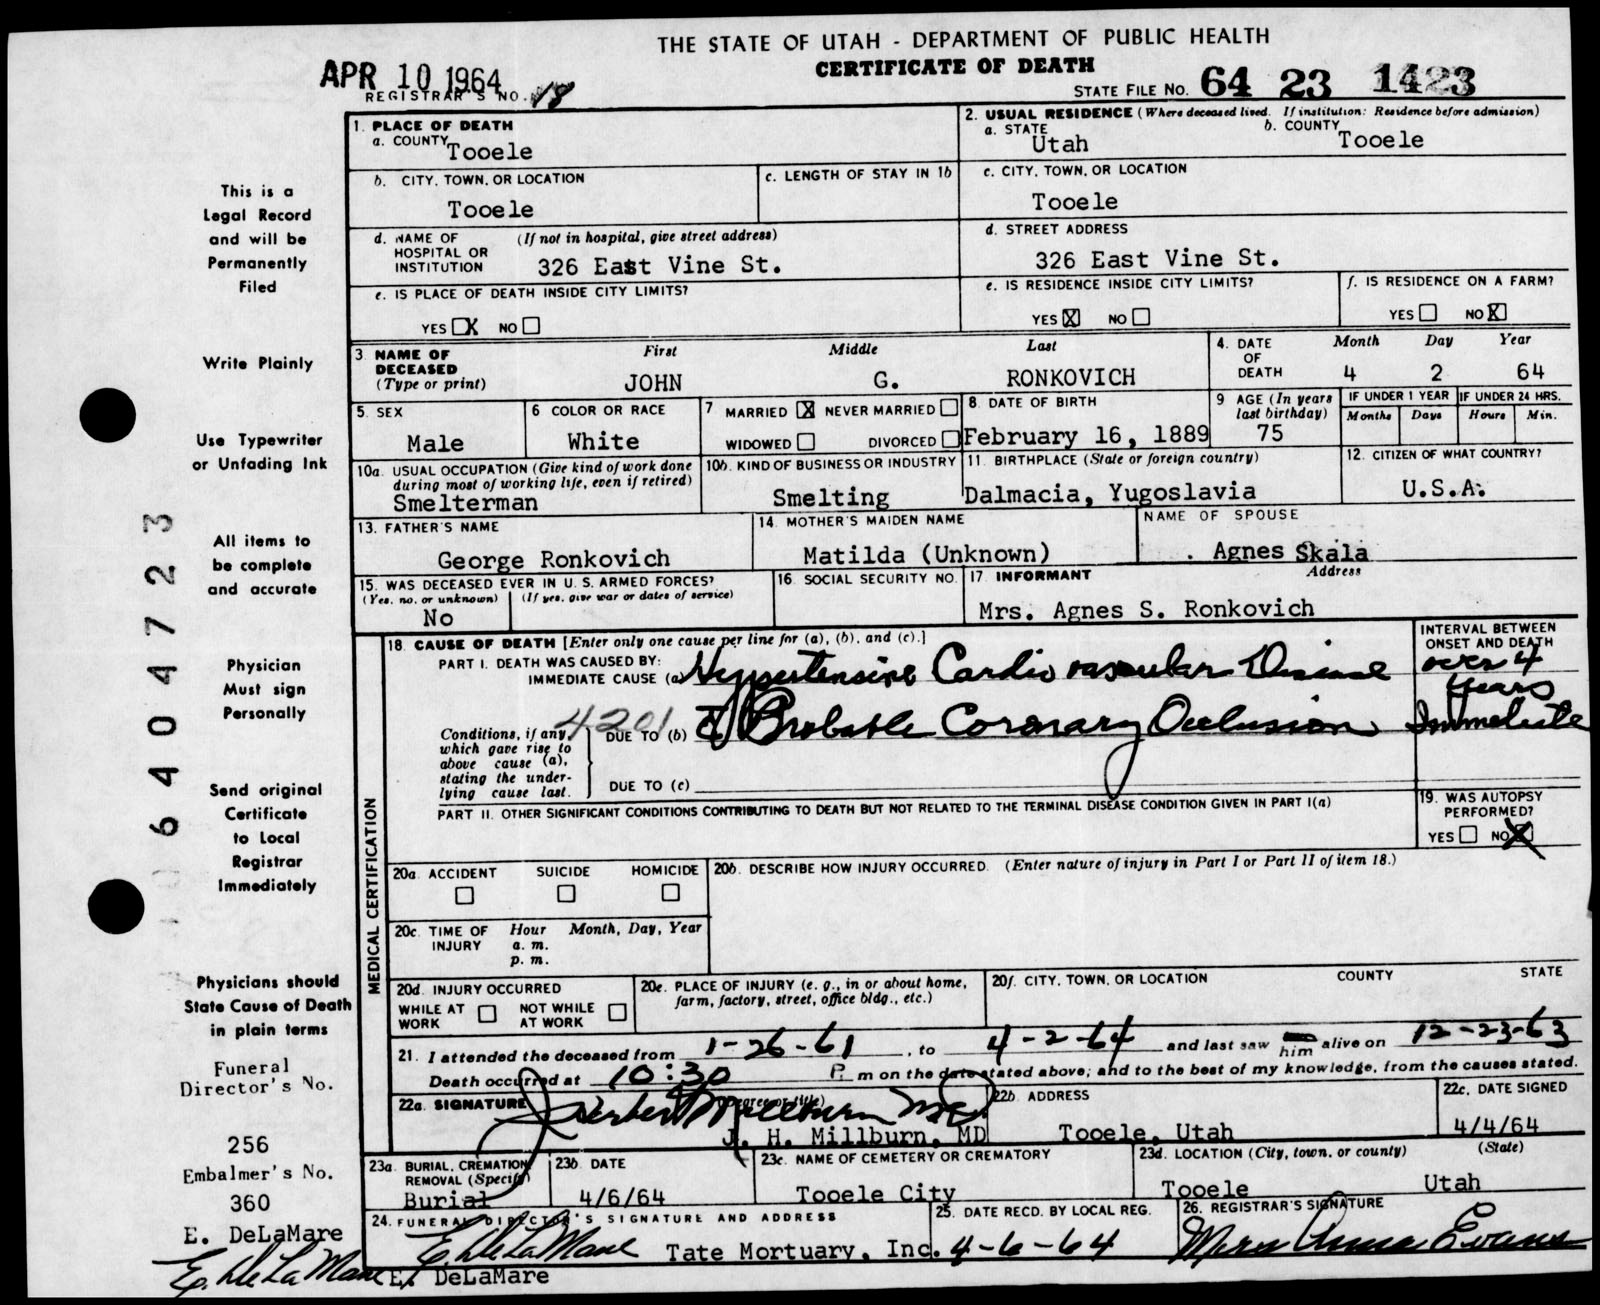 THE STATE OF UTAH - DEPARTMENT OF PUBLIC HEALTH
CERTIFICATE OF DEATH
APR 10 1964
REGISTRAR'S NO. 18
STATE FILE NO. 64 23 1423
This is a
Legal Record
and will be
Permanently
Filed
Write Plainly
Use Typewriter
or Unfading Ink
All items to
be complete
and accurate
Physician
Must sign
Personally
Send original
Certificate
to Local
Registrar
Immediately
Physicians should
State Cause of Death
in plain terms
Funeral
Director's No.
256
Embalmer's No.
360
E. DeLaMare
E. DeLaMare
6404723
1. PLACE OF DEATH
a. COUNTY Tooele
2. USUAL RESIDENCE (Where deceased lived. If institution: Residence before admission)
a. STATE Utah
b. COUNTY Tooele
b. CITY, TOWN, OR LOCATION
Tooele
c. LENGTH OF STAY IN 1b
c. CITY, TOWN, OR LOCATION
Tooele
d. NAME OF HOSPITAL OR INSTITUTION (If not in hospital, give street address)
326 East Vine St.
d. STREET ADDRESS
326 East Vine St.
e. IS PLACE OF DEATH INSIDE CITY LIMITS?
YES X NO
e. IS RESIDENCE INSIDE CITY LIMITS?
YES X NO
f. IS RESIDENCE ON A FARM?
YES NO X
3. NAME OF DECEASED (Type or print)
First Middle Last
JOHN G. RONKOVICH
4. DATE OF DEATH
Month Day Year
4 2 64
5. SEX
Male
6 COLOR OR RACE
White
7 MARRIED X NEVER MARRIED
WIDOWED DIVORCED
8. DATE OF BIRTH
February 16, 1889
9 AGE (In years last birthday)
75
IF UNDER 1 YEAR
Months Days
IF UNDER 24 HRS.
Hours Min.
10a. USUAL OCCUPATION (Give kind of work done during most of working life, even if retired)
Smelterman
10b. KIND OF BUSINESS OR INDUSTRY
Smelting
11. BIRTHPLACE (State or foreign country)
Dalmacia, Yugoslavia
12. CITIZEN OF WHAT COUNTRY?
U.S.A.
13. FATHER'S NAME
George Ronkovich
14. MOTHER'S MAIDEN NAME
Matilda (Unknown)
NAME OF SPOUSE
. Agnes Skala
15. WAS DECEASED EVER IN U. S. ARMED FORCES?
(Yes, no, or unknown) (If yes, give war or dates of service)
No
16. SOCIAL SECURITY NO.
17. INFORMANT Address
Mrs. Agnes S. Ronkovich
MEDICAL CERTIFICATION
18. CAUSE OF DEATH [Enter only one cause per line for (a), (b), and (c).]
PART I. DEATH WAS CAUSED BY:
IMMEDIATE CAUSE (a) Hypertensive Cardio vascular Disease
INTERVAL BETWEEN ONSET AND DEATH
over 4 years
Conditions, if any, which gave rise to above cause (a), stating the underlying cause last.
4201
DUE TO (b) Probable Coronary Occlusion Immediate
DUE TO (c)
PART II. OTHER SIGNIFICANT CONDITIONS CONTRIBUTING TO DEATH BUT NOT RELATED TO THE TERMINAL DISEASE CONDITION GIVEN IN PART I(a)
19. WAS AUTOPSY PERFORMED?
YES NO X
20a. ACCIDENT SUICIDE HOMICIDE
20b. DESCRIBE HOW INJURY OCCURRED. (Enter nature of injury in Part I or Part II of item 18.)
20c. TIME OF INJURY
Hour Month, Day, Year
a. m.
p. m.
20d. INJURY OCCURRED
WHILE AT WORK NOT WHILE AT WORK
20e. PLACE OF INJURY (e. g., in or about home, farm, factory, street, office bldg., etc.)
20f. CITY, TOWN, OR LOCATION COUNTY STATE
21. I attended the deceased from 1-26-61, to 4-2-64 and last saw him alive on 12-23-63
Death occurred at 10:30 P. m on the date stated above; and to the best of my knowledge, from the causes stated.
22a. SIGNATURE (Degree or title)
J Herbert Millburn MD
J. H. Millburn, MD
22b. ADDRESS
Tooele, Utah
22c. DATE SIGNED
4/4/64
23a. BURIAL, CREMATION, REMOVAL (Specify)
Burial
23b. DATE
4/6/64
23c. NAME OF CEMETERY OR CREMATORY
Tooele City
23d. LOCATION (City, town, or county) (State)
Tooele Utah
24. FUNERAL DIRECTOR'S SIGNATURE AND ADDRESS
E. DeLaMare Tate Mortuary, Inc.
E. DeLaMare
25. DATE RECD. BY LOCAL REG.
4-6-64
26. REGISTRAR'S SIGNATURE
Mrs Anna Evans